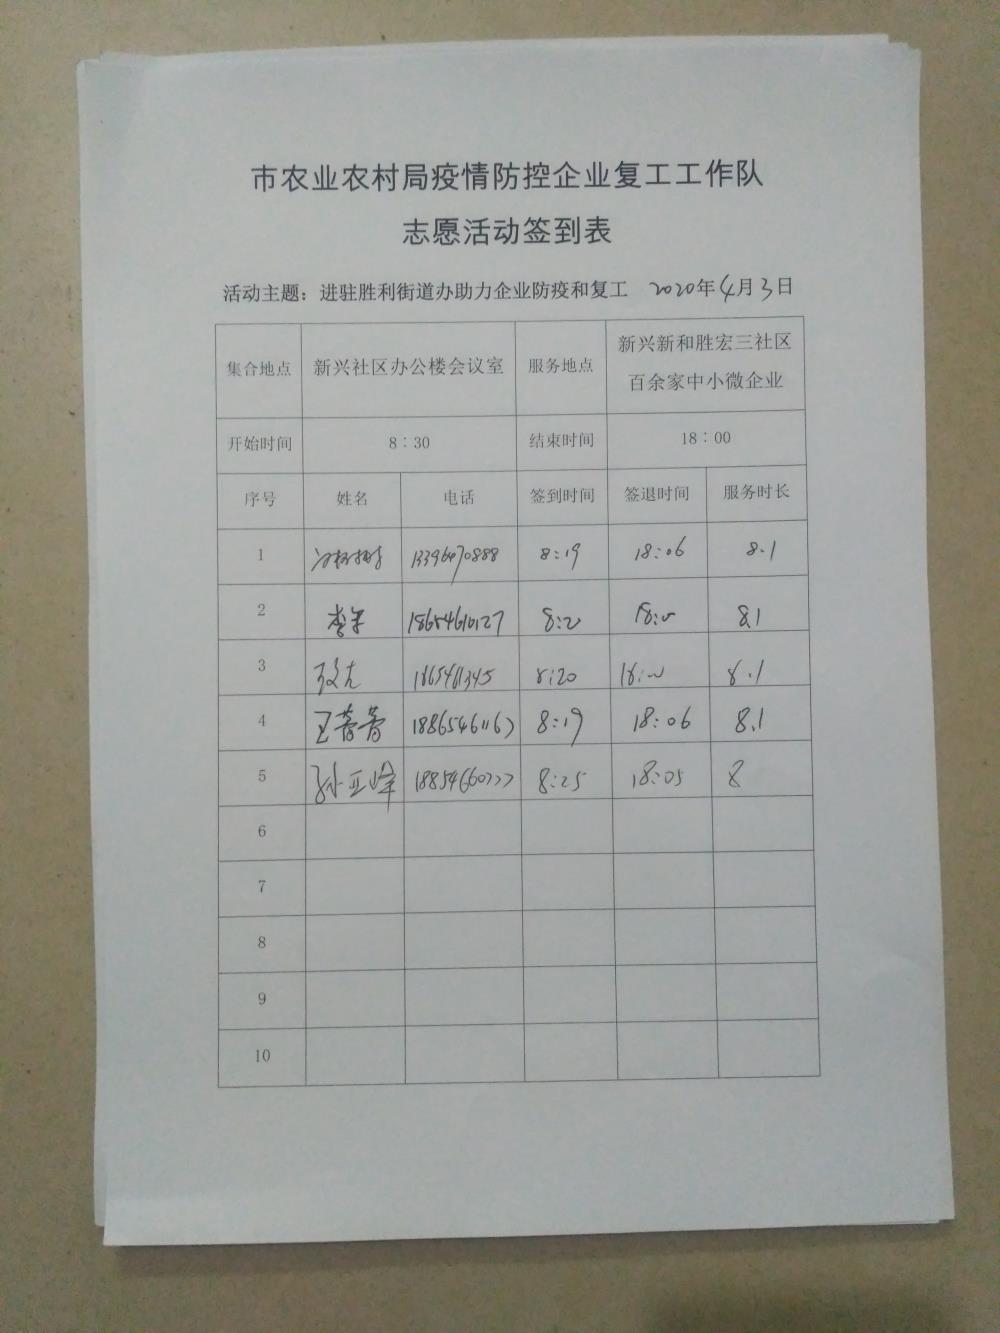 市农业农村局疫情防控企业复工工作队
志愿活动签到表
活动主题：进驻胜利街道办助力企业防疫和复工 2020年4月3日
集合地点 新兴社区办公楼会议室 服务地点 新兴新和胜宏三社区
百余家中小微企业
开始时间 8：30 结束时间 18：00
序号 姓名 电话 签到时间 签退时间 服务时长
1 8:19 18:06 8.1
2 18654610127 8:20 8.1
3 8:20 8.1
4 王菁菁 8:19 18:06 8.1
5 孙亚峰 8:25 18:05 8
6
7
8
9
10